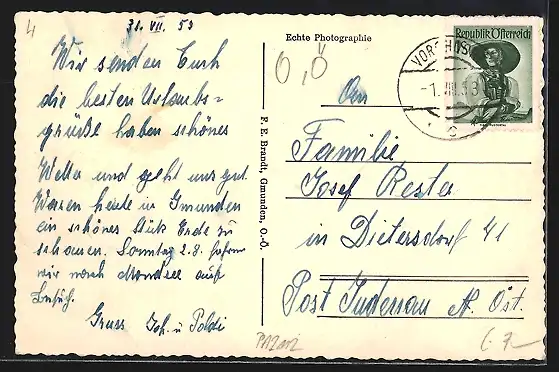 4
31. VII. 53
Wir senden Euch
die besten Urlaubs-
grüße haben schönes
Wetter und geht uns gut.
Waren heute in Gmunden
ein schönes Stück Erde zu
schauen. Sonntag 2.8. fahren
wir nach Mondsee auf
Besuch.
Gruss Joh. u Poldi
Echte Photographie
F. E. Brandt, Gmunden, O.-Ö.
O, Ö
Republik Österreich
An
Familie
Josef Resta
in Dietersdorf 41
Post Judenau N. Öst.